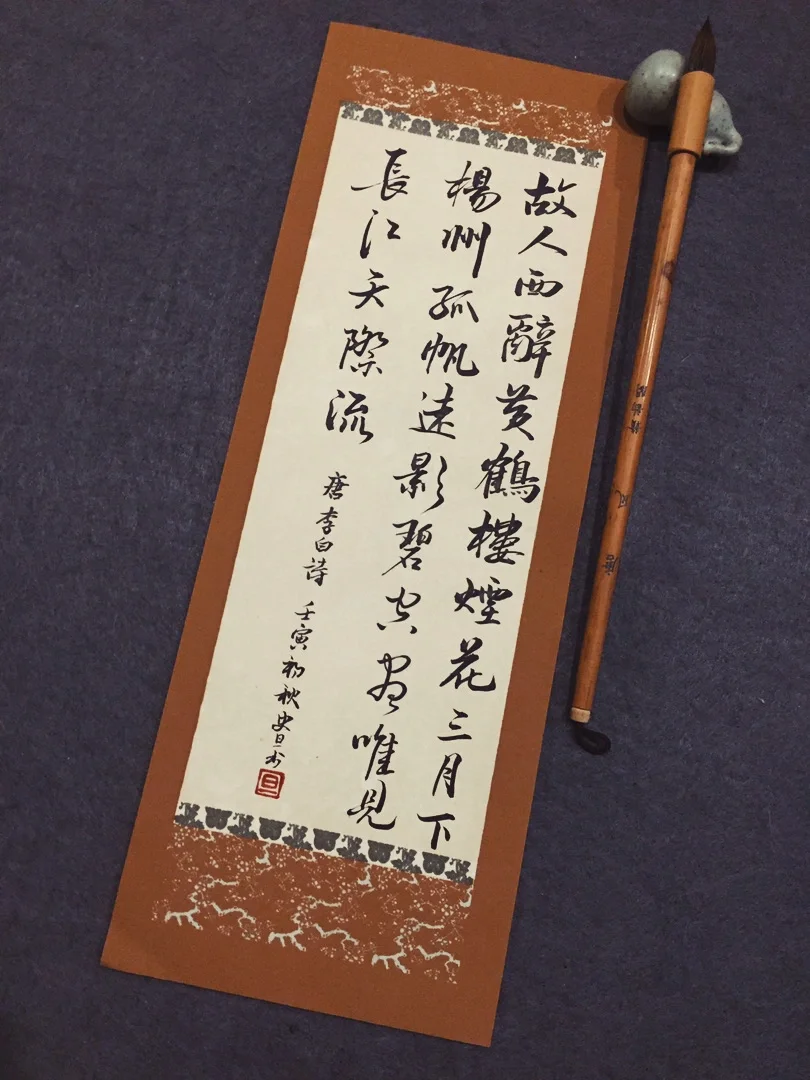 故人西辭黃鶴樓煙花三月下
楊州孤帆遠影碧空盡唯見
長江天際流
唐李白詩 壬寅初秋史旦书
旦